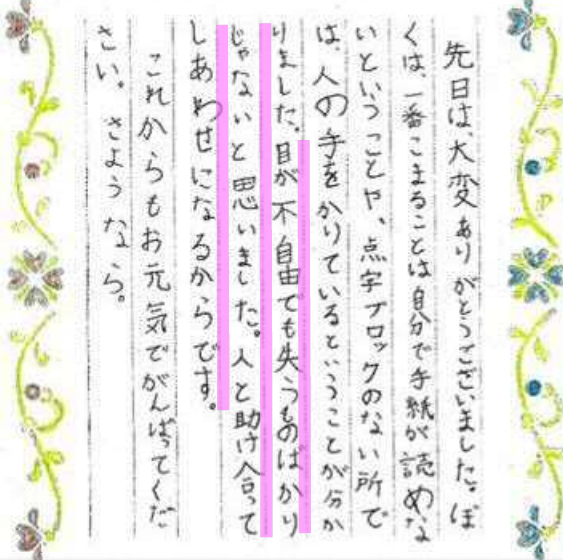 先日は、大変ありがとうございました。ぼ
くは、一番こまることは自分で手紙が読めな
いということや、点字ブロックのない所で
は、人の手をかりているということが分か
りました。目が不自由でも失うものばかり
じゃないと思いました。人と助け合って
しあわせになるからです。
これからもお元気でがんばってくだ
さい。さようなら。